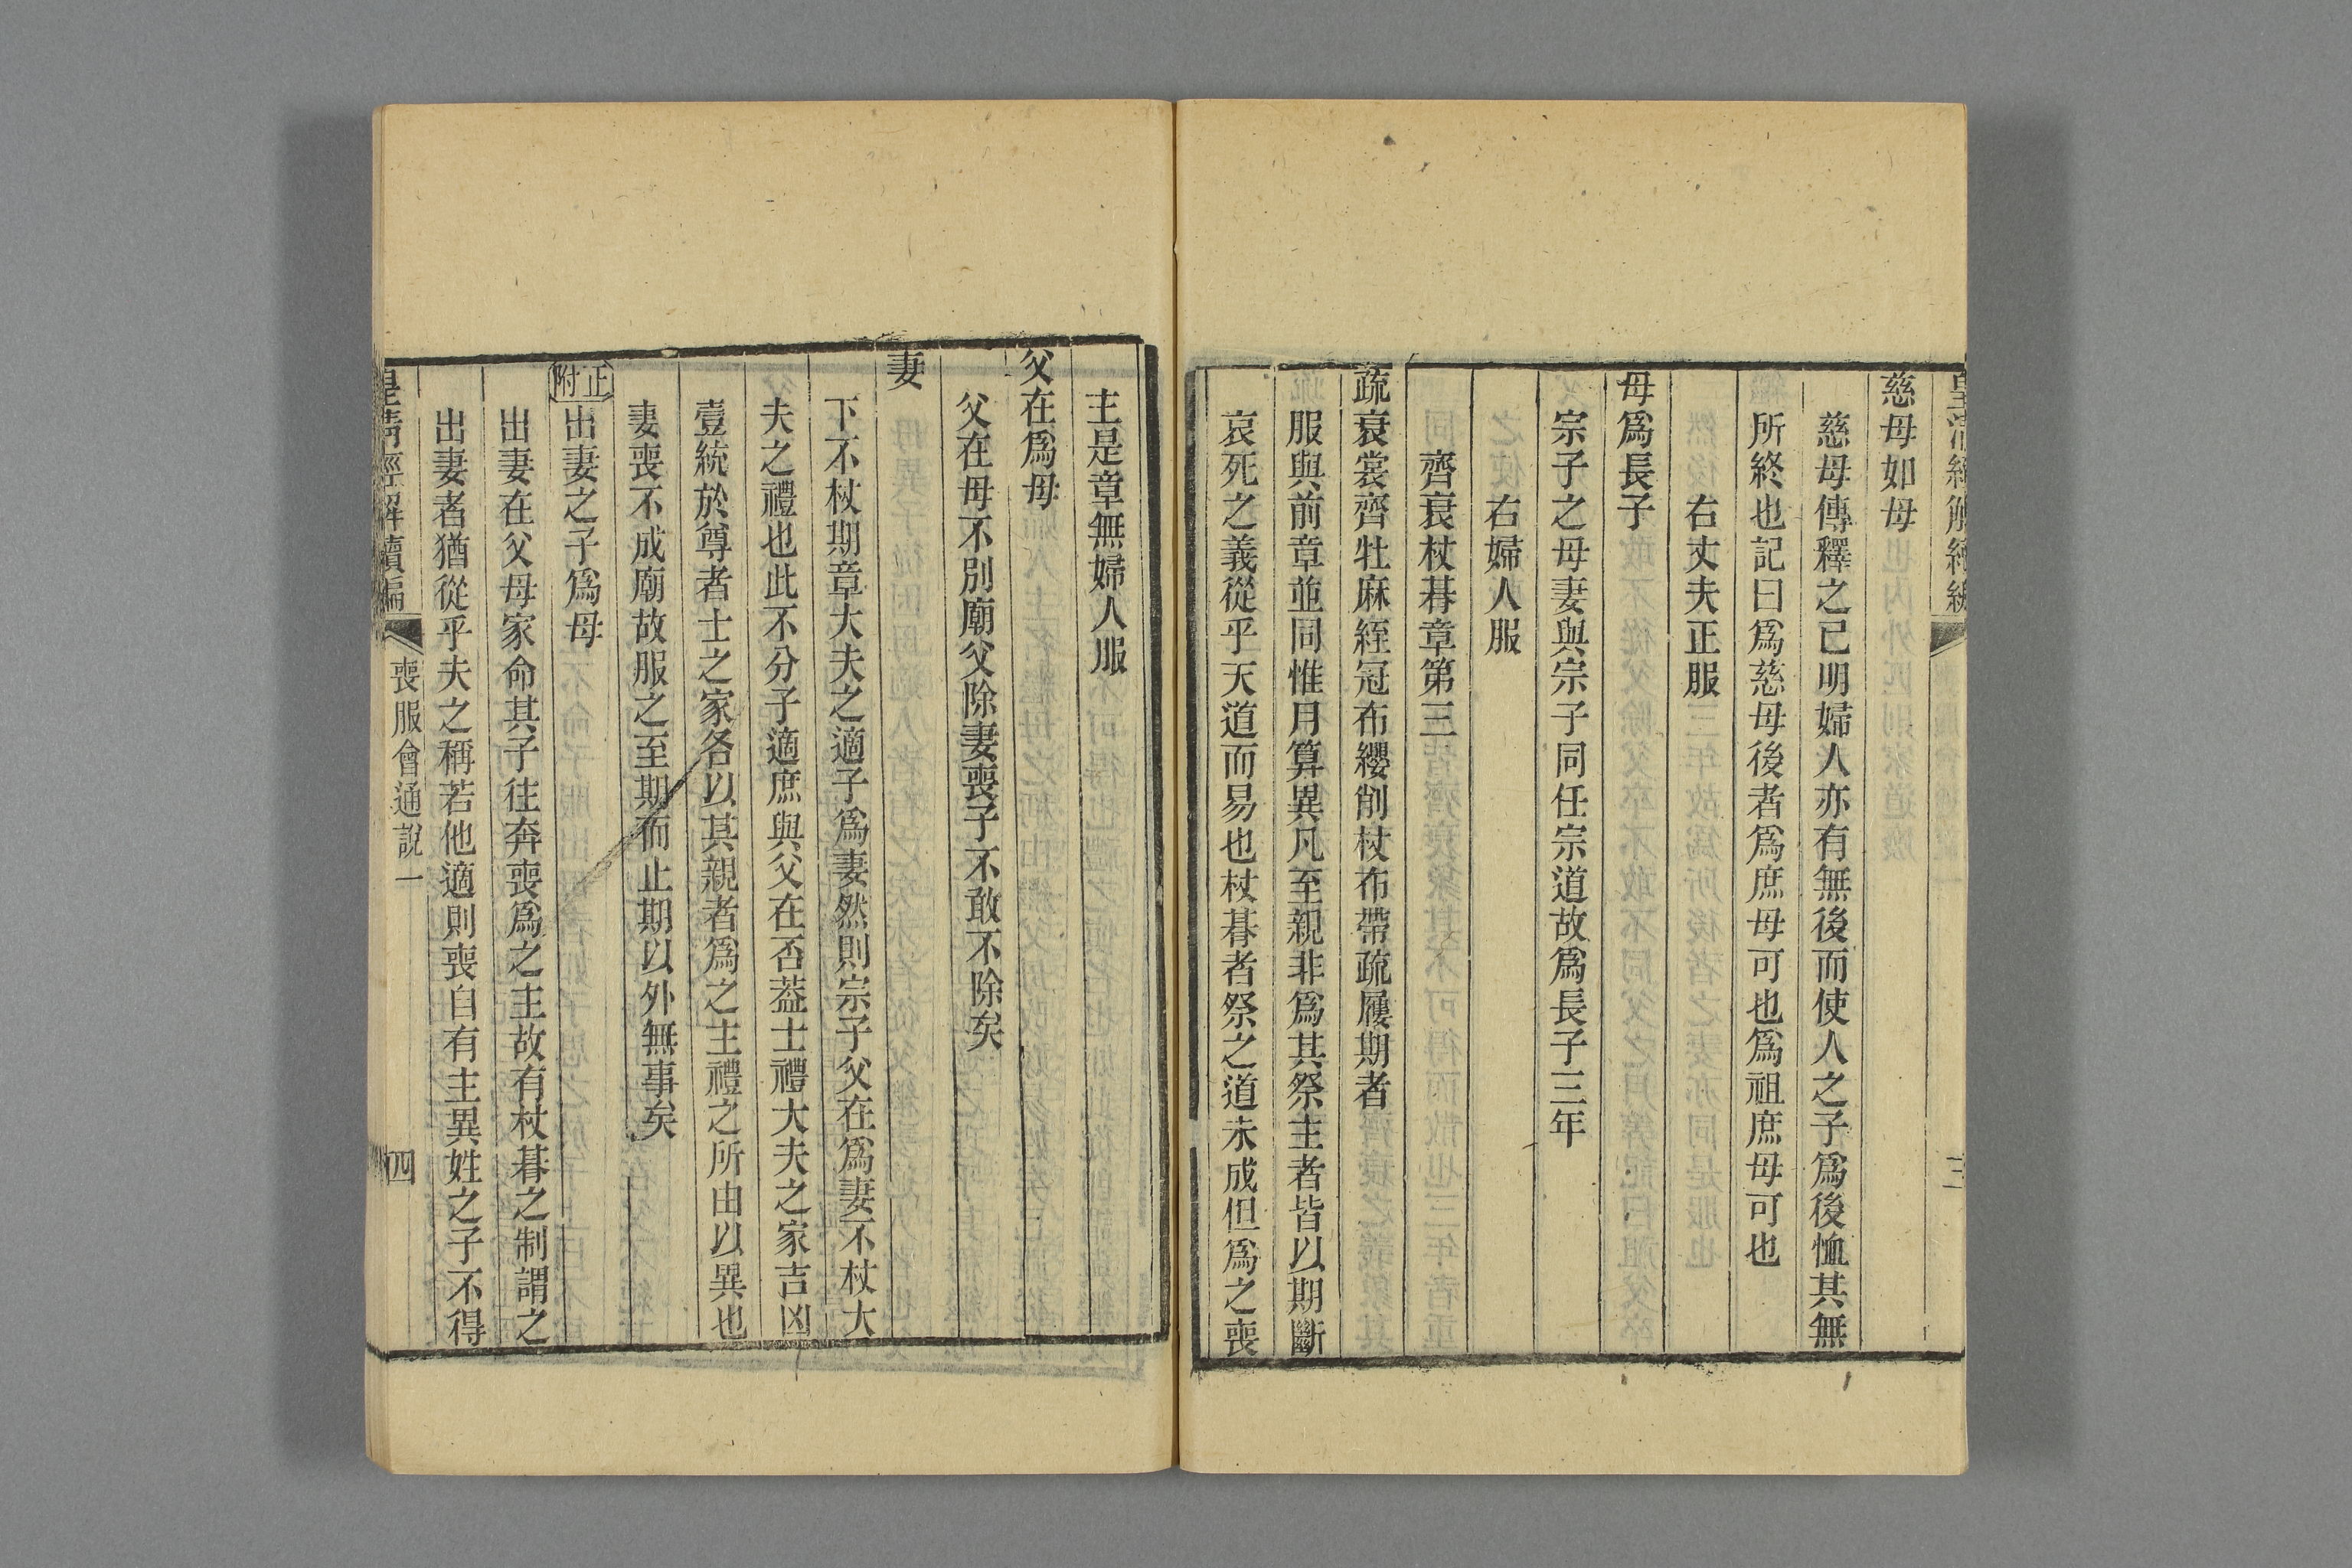 慈母如母
慈母傳釋之已明婦人亦有無後而使人之子爲後恤其無
所終也記曰爲慈母後者爲庶母可也爲祖庶母可也
右丈夫正服
母爲長子
宗子之母妻與宗子同任宗道故爲長子三年
右婦人服
齊衰杖朞章第三
疏衰裳齊牡麻絰冠布纓削杖布帶疏屨期者
服與前章並同惟月算異凡至親非爲其祭主者皆以期斷
哀死之義從乎天道而易也杖朞者祭之道未成但爲之喪
主是章無婦人服
父在爲母
父在母不別廟父除妻喪子不敢不除矣
妻
下不杖期章大夫之適子爲妻然則宗子父在爲妻不杖大
夫之禮也此不分子適庶與父在否葢士禮大夫之家吉凶
壹統於尊者士之家各以其親者爲之主禮之所由以異也
妻喪不成廟故服之至期而止期以外無事矣
正附出妻之子爲母
出妻在父母家命其子往奔喪爲之主故有杖朞之制謂之
出妻者猶從乎夫之稱若他適則喪自有主異姓之子不得
皇清經解續編 喪服會通說一 四